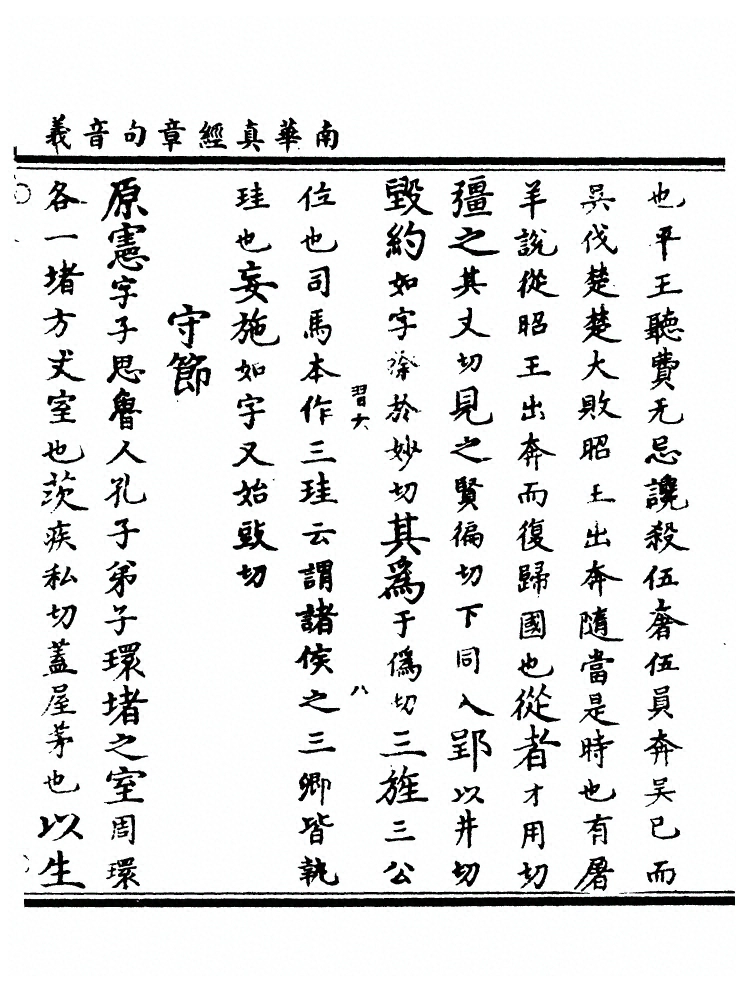 南華真經章句音義
也平王聽費无忌讒殺伍奢伍員奔吳已而
吳伐楚楚大敗昭王出奔隨當是時也有屠
羊說從昭王出奔而復歸國也從者才用切
彊之其丈切見之賢徧切下同入郢以井切
毀約如字徐於妙切其為于偽切三旌三公
習六
八
位也司馬本作三珪云謂諸侯之三卿皆執
珪也妄施如字又始豉切
守節
原憲字子思魯人孔子弟子環堵之室周環
各一堵方丈室也茨疾私切蓋屋茅也以生